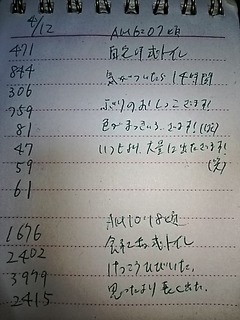 4/12
AM6:07頃
471 自宅の式トイレ
844 気がついたら14時間
306 ぶりのおしっこです!
759 色がまっきいろです!(笑)
81
47 いつもより、大量に出たです!
59 (笑)
61
AM10:18頃
1676 会社の式トイレ
2402 けっこうひびいた。
3979 思ったより長く出た。
2415